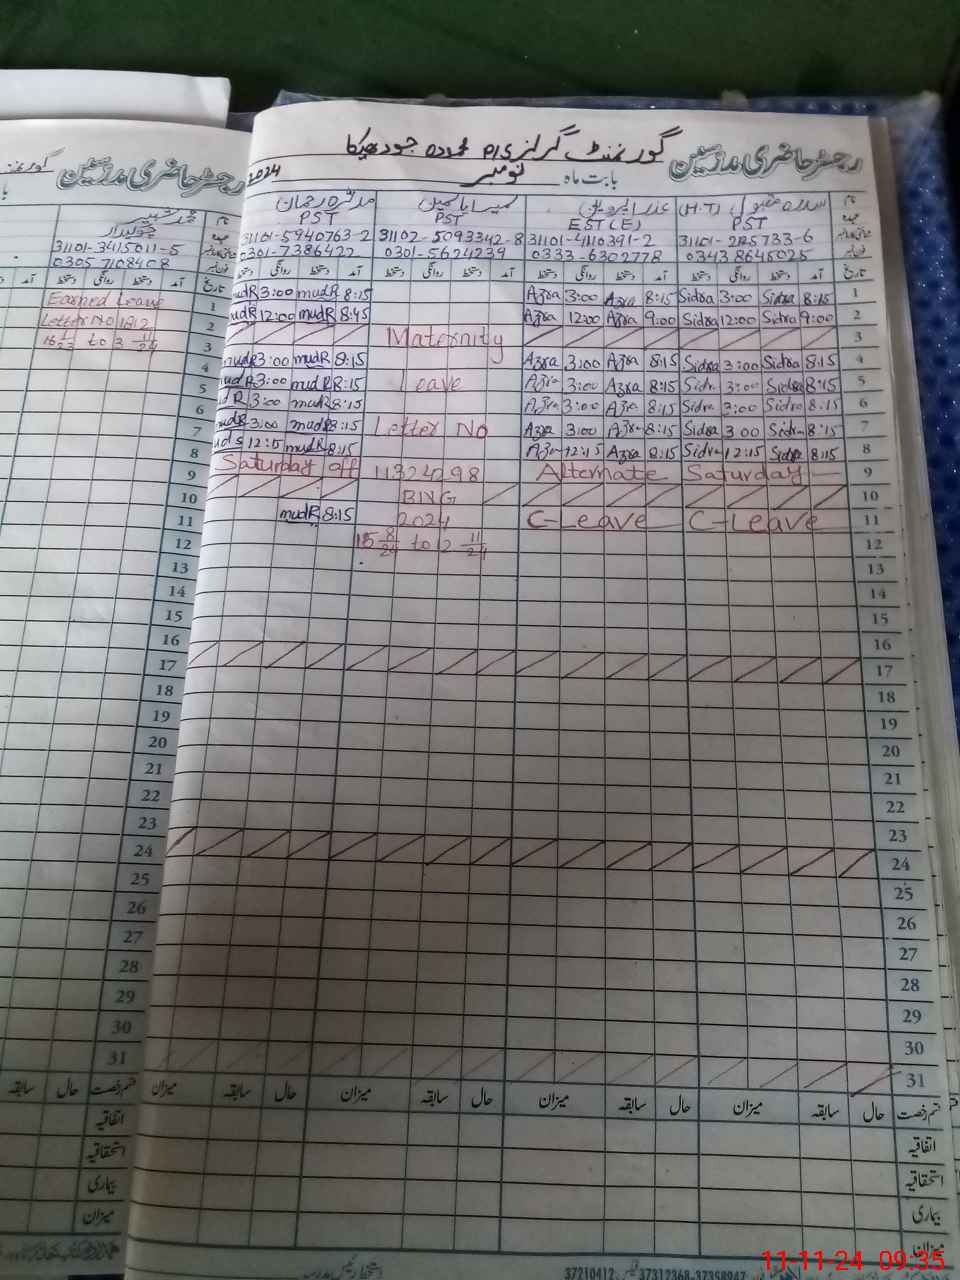 رجسٹر حاضری مدرسین گورنمنٹ گرلز
بابت ماہ نومبر 2024
نام
PST (H.T)
EST (E)
PST
PST
31101-5940763-2 31102-5093342-8 31101-4110391-2
0301-7386422 0301-5624239 0333-6302778 03438645025
تاریخ آمد دستخط روانگی دستخط آمد دستخط روانگی دستخط آمد دستخط روانگی دستخط آمد دستخط روانگی دستخط
mudR 3:00 mudR 8:15 Azra 3:00 Azra 8:15 Sidra 3:00 Sidra 8:15 1
mudR 12:00 mudR 8:45 Azra 12:00 Azra 9:00 Sidra 12:00 Sidra 9:00 2
Maternity 3
mudR 3:00 mudR 8:15 Azra 3:00 Azra 8:15 Sidra 3:00 Sidra 8:15 4
mudR 3:00 mudR 8:15 Leave Azra 3:00 Azra 8:15 Sidra 3:00 Sidra 8:15 5
3:00 mudR 8:15 Azra 3:00 Azra 8:15 Sidra 3:00 Sidra 8:15 6
mudR 3:00 mudR 8:15 Letter No Azra 3:00 Azra 8:15 Sidra 3:00 Sidra 8:15 7
12:15 mudR 8:15 Azra 12:15 Azra 8:15 Sidra 12:15 Sidra 8:15 8
Saturday off 11324298 Alternate Saturday 9
BNG 10
mudR 8:15 2024 C-Leave C-Leave 11
15 8/24 to 12 11/24 12
13
14
15
16
17
18
19
20
21
22
23
24
25
26
27
28
29
30
31
قسم رخصت حال سابقہ میزان حال سابقہ میزان حال سابقہ میزان حال سابقہ میزان
اتفاقیہ
استحقاقیہ
بیماری
37210412 37312368-37358947
رجسٹر حاضری مدرسین
نام
چوکیدار
31101-3415011-5
03057108408
تاریخ آمد دستخط روانگی دستخط
Earned Leave 1
Letter No 1812 2
3
4
5
6
7
8
9
10
11
12
13
14
15
16
17
18
19
20
21
22
23
24
25
26
27
28
29
30
31
قسم رخصت حال سابقہ
اتفاقیہ
استحقاقیہ
بیماری
میزان
11-11-24 09:35